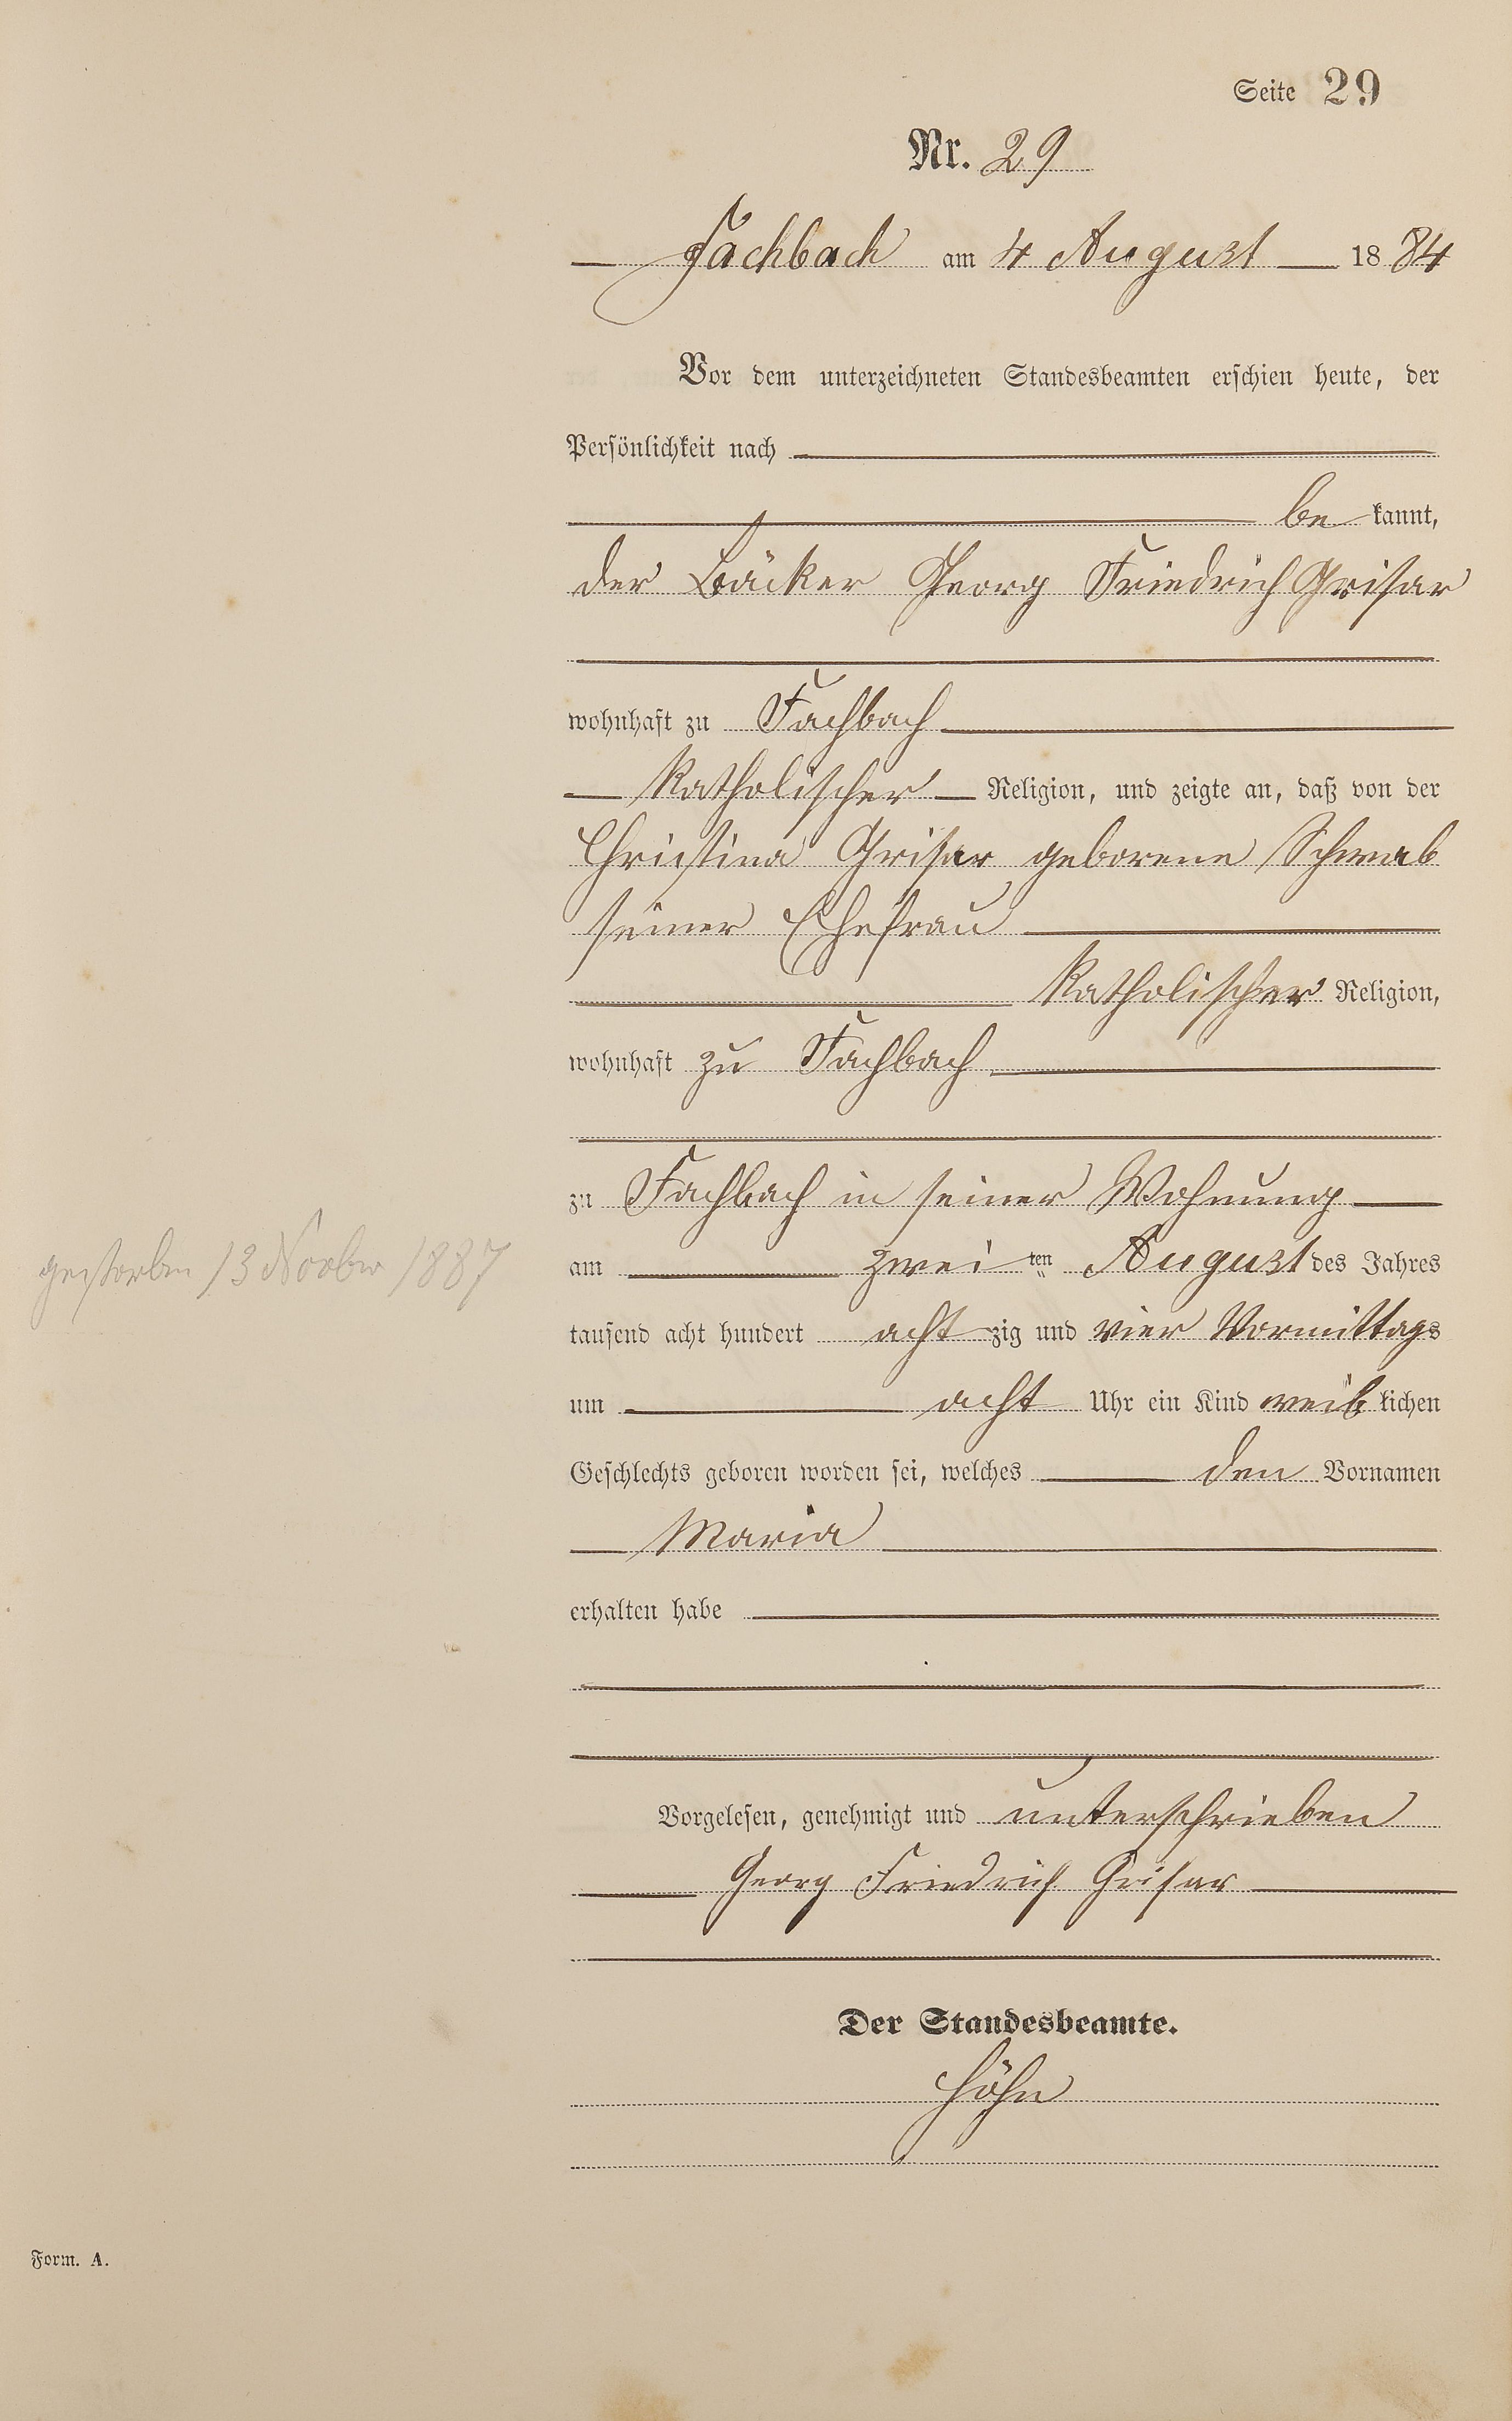 Seite 29
Nr. 29
Fachbach am 4 August 1884
Vor dem unterzeichneten Standesbeamten erschien heute, der
Persönlichkeit nach
be kannt,
der Bäcker Georg Friedrich Grisar
wohnhaft zu Fachbach
katholischer Religion, und zeigte an, daß von der
Christina Grisar geborene Schwab
seiner Ehefrau
katholischer Religion,
wohnhaft zu Fachbach
zu Fachbach in seiner Wohnung
am zwei ten August des Jahres
gestorben 13 Novbr 1887
tausend acht hundert acht zig und vier Vormittags
um acht Uhr ein Kind weib lichen
Geschlechts geboren worden sei, welches den Vornamen
Maria
erhalten habe
Vorgelesen, genehmigt und unterschrieben
Georg Friedrich Grisar
Der Standesbeamte.
Höhn
Form. A.